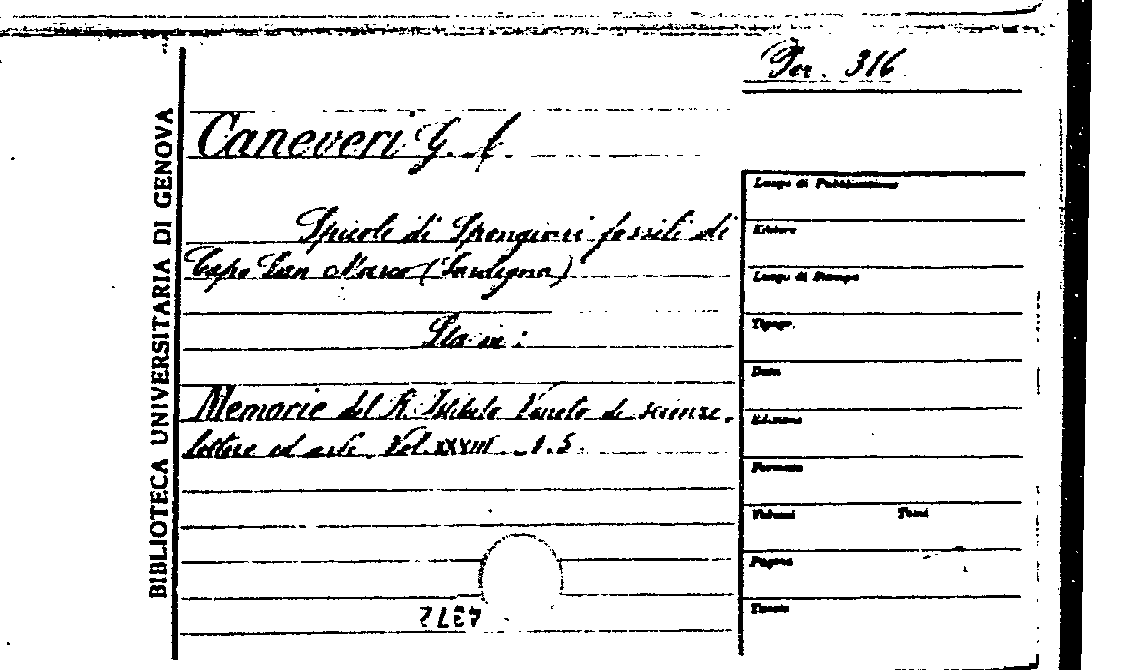 Per. 316
BIBLIOTECA UNIVERSITARIA DI GENOVA
Caneveri G. A.
Spicole di Spongiari fossili di
Capo San Marco (Sardegna)
Sta in:
Memorie del R. Istituto Veneto di scienze,
lettere ed arti. Vol. XXXIII. 1.5.
Luogo di Pubblicazione
Editore
Luogo di Stampa
Tipogr.
Data
Edizione
Formato
Volumi Tomi
Pagine
Tavole
4372